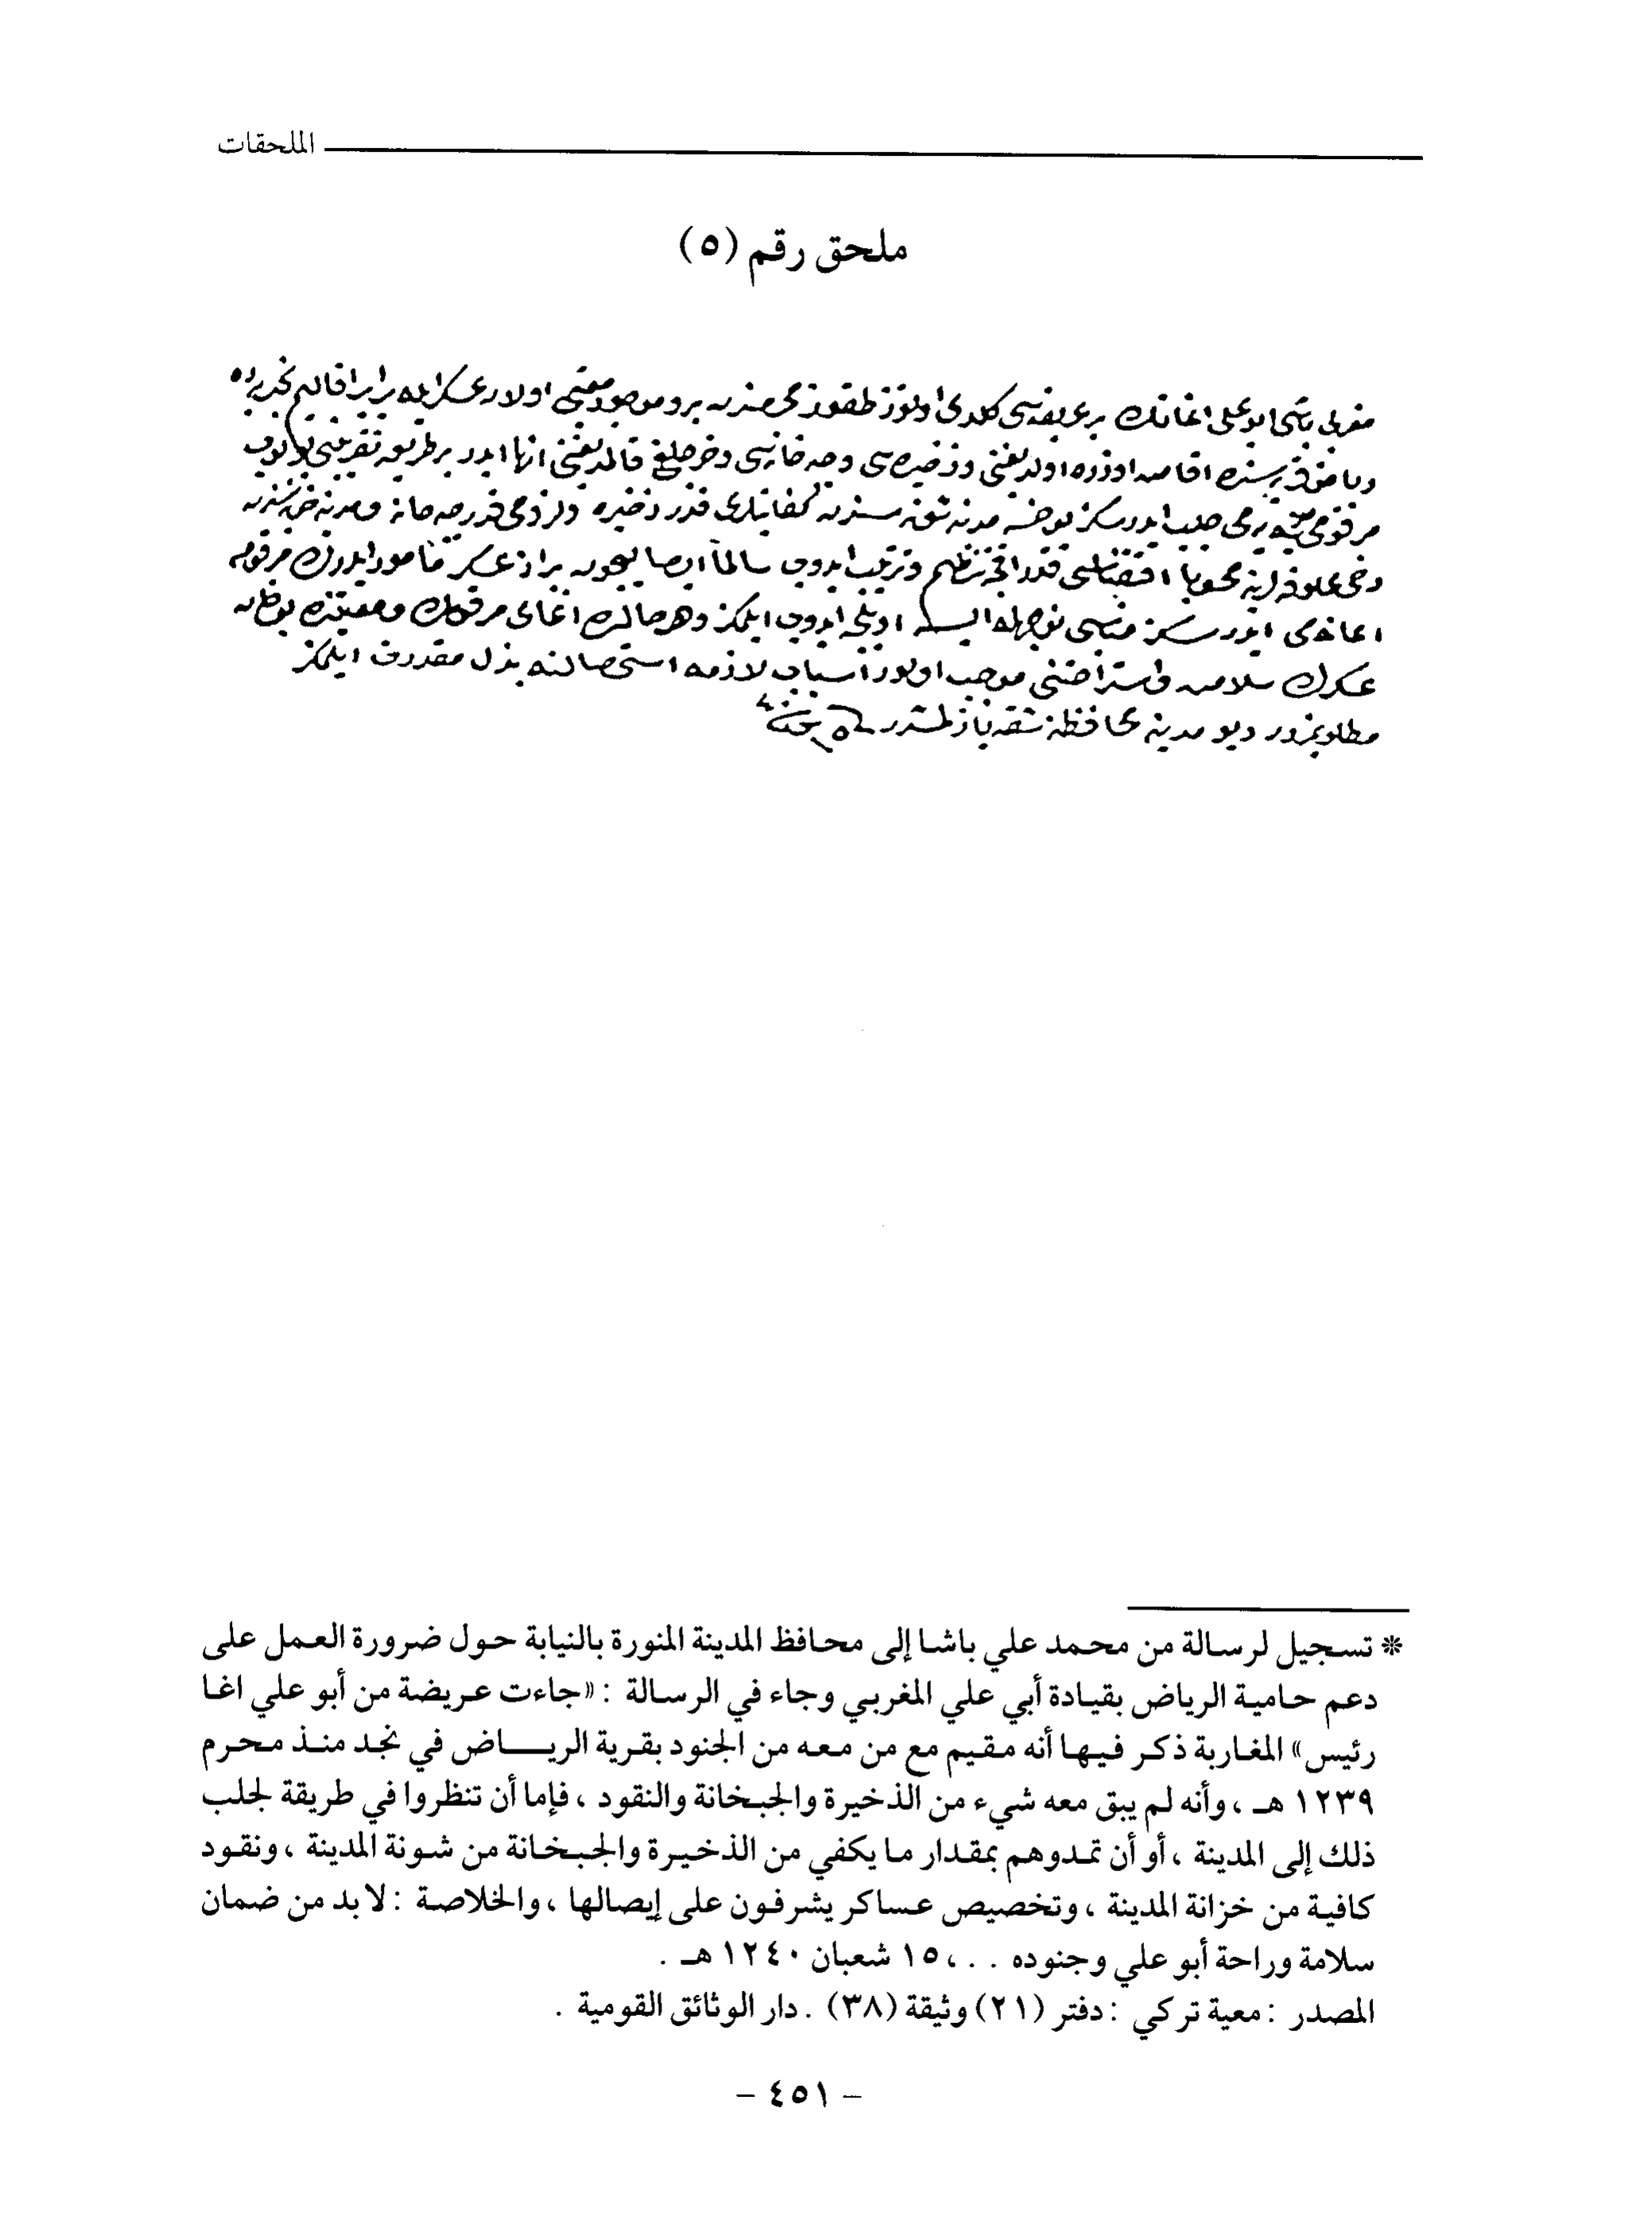 الملحقات
ملحق رقم (٥)
مغربى باشى ابو على اغانك بر عريضه سى كلدى اوتوز طقوز محرمندن برو موجود معيتى اولان عسكر ايله برابر اقاليم نجديه ده
رياض قريه سنده اقامت اوزره اولديغنى وذخيره سى وجبه خانه سى وخرجلغى قالمديغنى انها ايدر بر طريقه
جلب ايدرسكز يوخسه مدينه شونه سندن كفايتلرى قدر ذخيره وجبه خانه ومدينه خزينه سندن
دخى علوفه لرينه محسوبا اقتضاسى قدر اقچه تنظيم وترتيب ايدوب سالما ايصاليچون براز عسكر مأمور ايدرك مرقومه
اعانه مى ايدرسكز اويله جه ايدوب ايلمكز وهر حالده اغاى مرقومك ومعيتنده بولنان
عسكرك سلامت واستراحتنى موجب اولور اسباب لازمه استحصالنه بذل مقدرت ايلمكز
مطلوبمزدر ديو مدينه محافظنه شقه يازلمشدر
* تسجيل لرسالة من محمد علي باشا إلى محافظ المدينة المنورة بالنيابة حول ضرورة العمل على
دعم حامية الرياض بقيادة أبي علي المغربي وجاء في الرسالة : «جاءت عريضة من أبو علي اغا
رئيس» المغاربة ذكر فيها أنه مقيم مع من معه من الجنود بقرية الريـــاض في نجد منذ محرم
١٢٣٩ هـ ، وأنه لم يبق معه شيء من الذخيرة والجبخانة والنقود ، فإما أن تنظروا في طريقة لجلب
ذلك إلى المدينة ، أو أن تمدوهم بمقدار ما يكفي من الذخيرة والجبخانة من شونة المدينة ، ونقود
كافية من خزانة المدينة ، وتخصيص عساكر يشرفون على إيصالها ، والخلاصة : لا بد من ضمان
سلامة وراحة أبو علي وجنوده . . ، ١٥ شعبان ١٢٤٠ هـ .
المصدر : معية تركي : دفتر (٢١) وثيقة (٣٨) . دار الوثائق القومية .
- ٤٥١ -